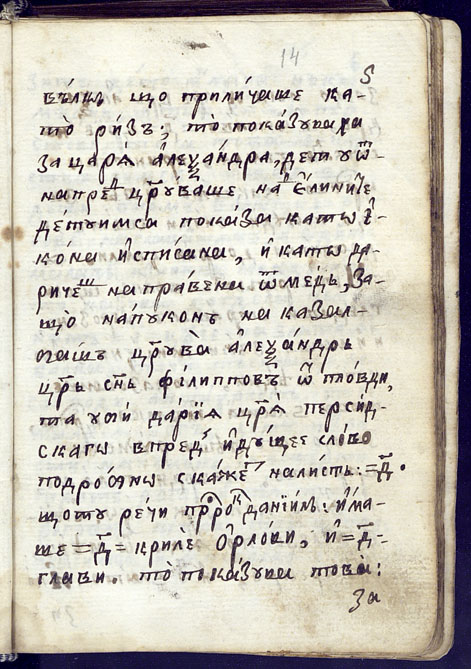 14
ѕ
вѣлїѡ що приличаше ка-
то̀ ри́зъ; то̀ показува ха
за царѧ̀ алеѯа́ндра, детѹ ѿ
напредⷣ црꙋ҃ва́ше на є҆лини́те
де́тѹимса пока́за катѡ і҆-
ко́на и҆спи́сана, и҆ катѡ да-
риче напра́вена ѿ ме́дь, за-
що̀ на́пуконъ на каза́л-
црꙋ҃ва̀ алеѯа́ндръ
црь҃ снъ҃ фили́пповъ ѿ пло́вди,
та ѹби́ да́рїѧ црѧ҃̀ персі́д-
скагѡ впредⸯ и҆дꙋ́щее сло́во
подро́бнѡ ска́же на ли́стъ: = д҃.
щотѹ речи прⷪ҇ро́къ данїи́лъ: и҆ма-
ше = д҃ = крилѐ о҆рло́ви, и҆ = д҃-
глави. то̀ пока́зува това̀:
за